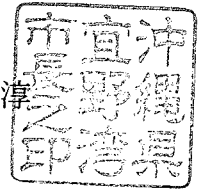 沖縄県
宜野湾
市長之印
淳